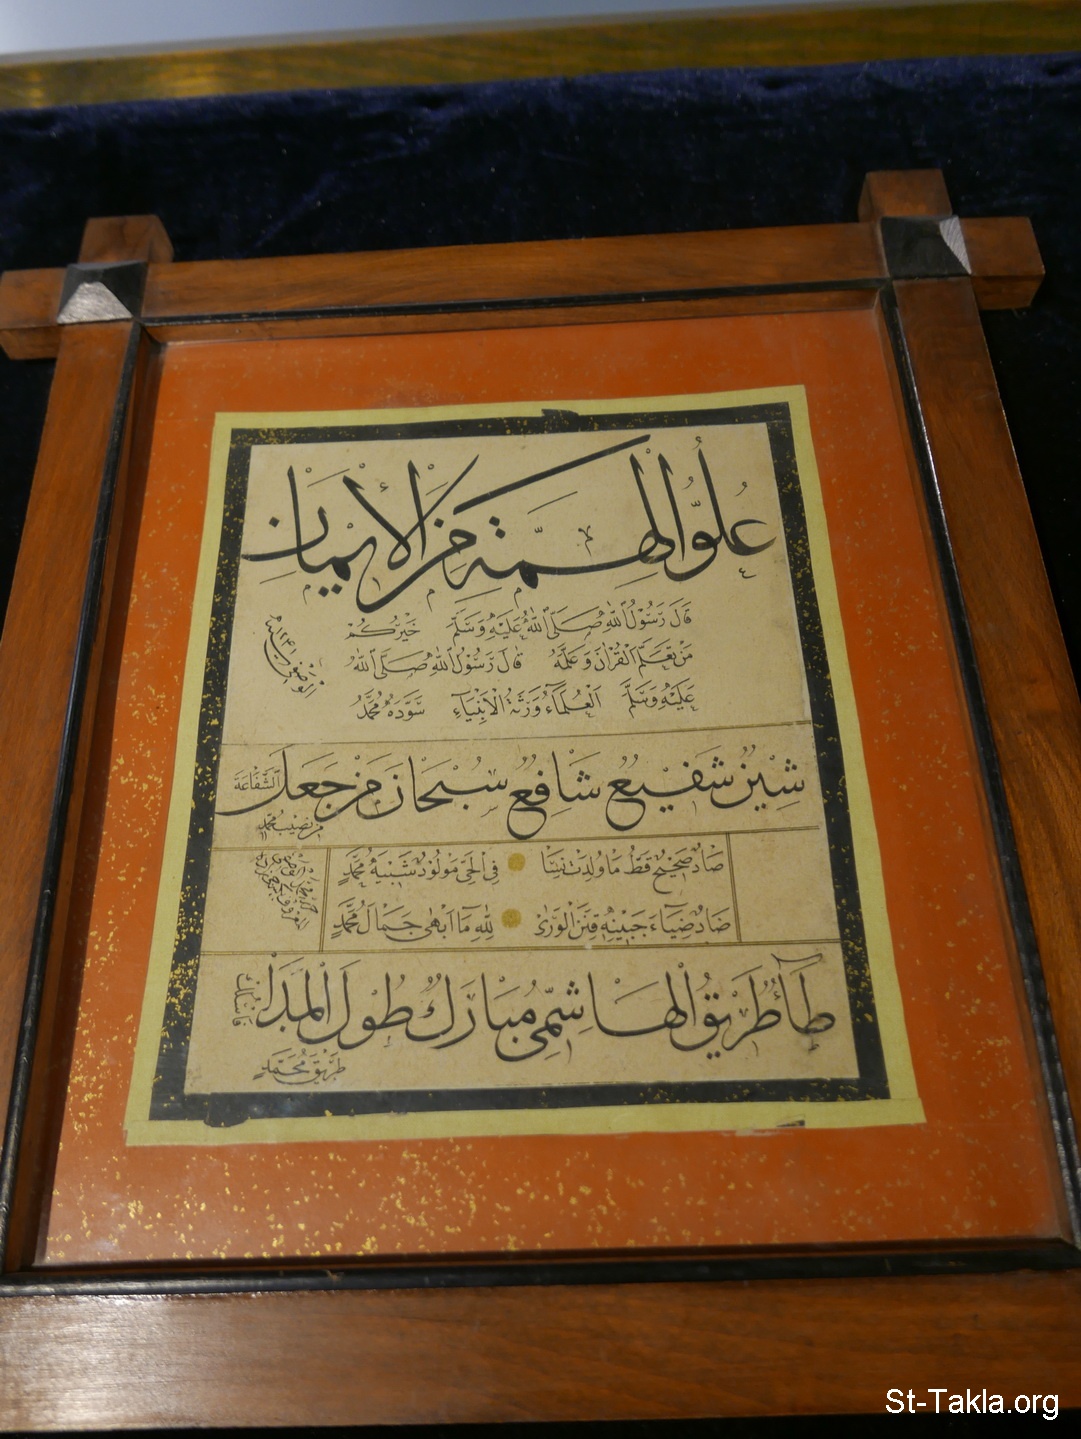 علو الهمة من الإيمان
قال رسول الله صلى الله عليه وسلم خيركم
من تعلم القرآن وعلمه قال رسول الله صلى الله
عليه وسلم العلماء ورثة الأنبياء سوده محمد
الوصفي
شين شفيع شافع سبحان من جعل الشفاعة
من نصيب محمد
صاد صحيح قط ما ولدت نسا في الحي مولود شبيه محمد
ضاد ضياء جبينه فتن الورى لله ما أبهى جمال محمد
طاء طريق الهاشمي مبارك طول المدا
طريق محمد
St-Takla.org